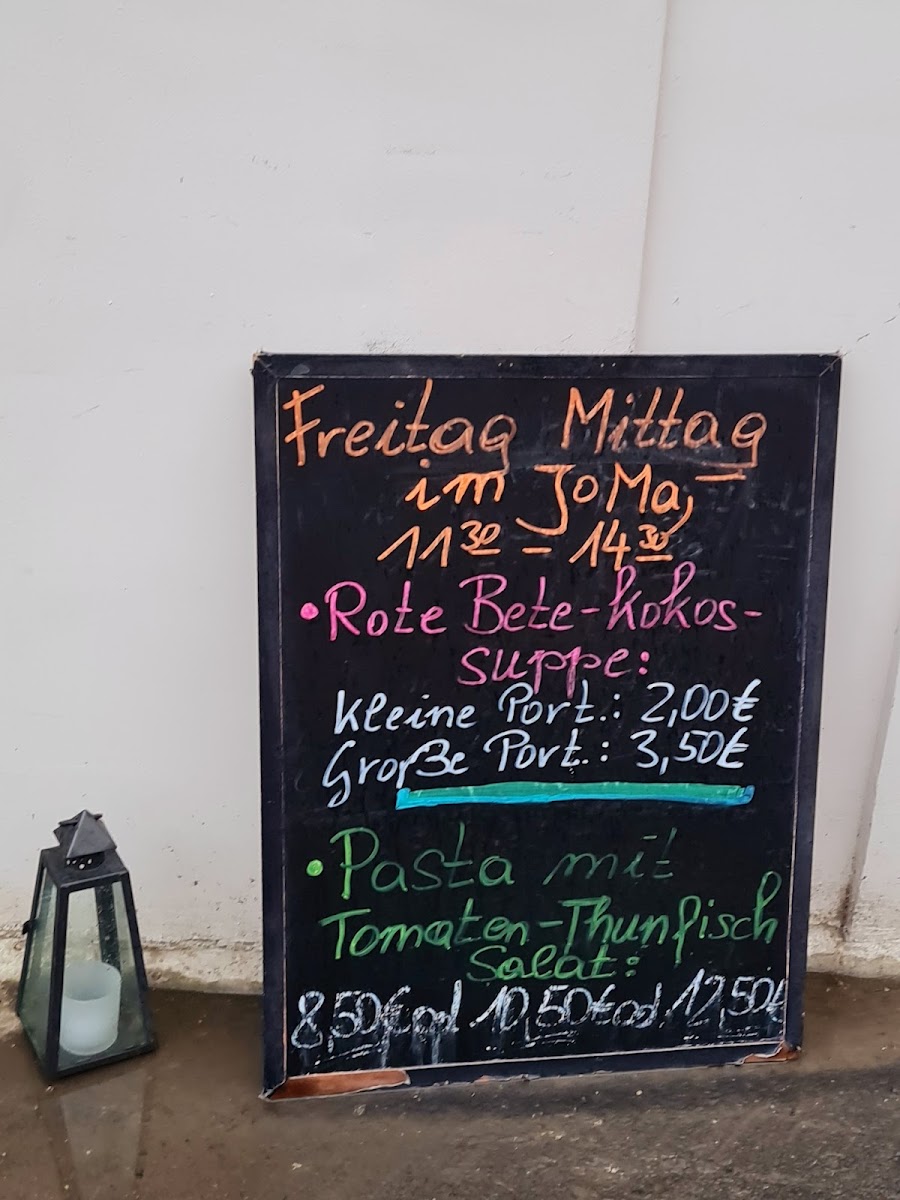 Freitag Mittag
im JoMa,
11³⁰ - 14³⁰
• Rote Bete-Kokos-
suppe:
Kleine Port.: 2,00€
Große Port.: 3,50€
• Pasta mit
Tomaten-Thunfisch
Salat:
8,50€ od 10,50€ od 12,50€